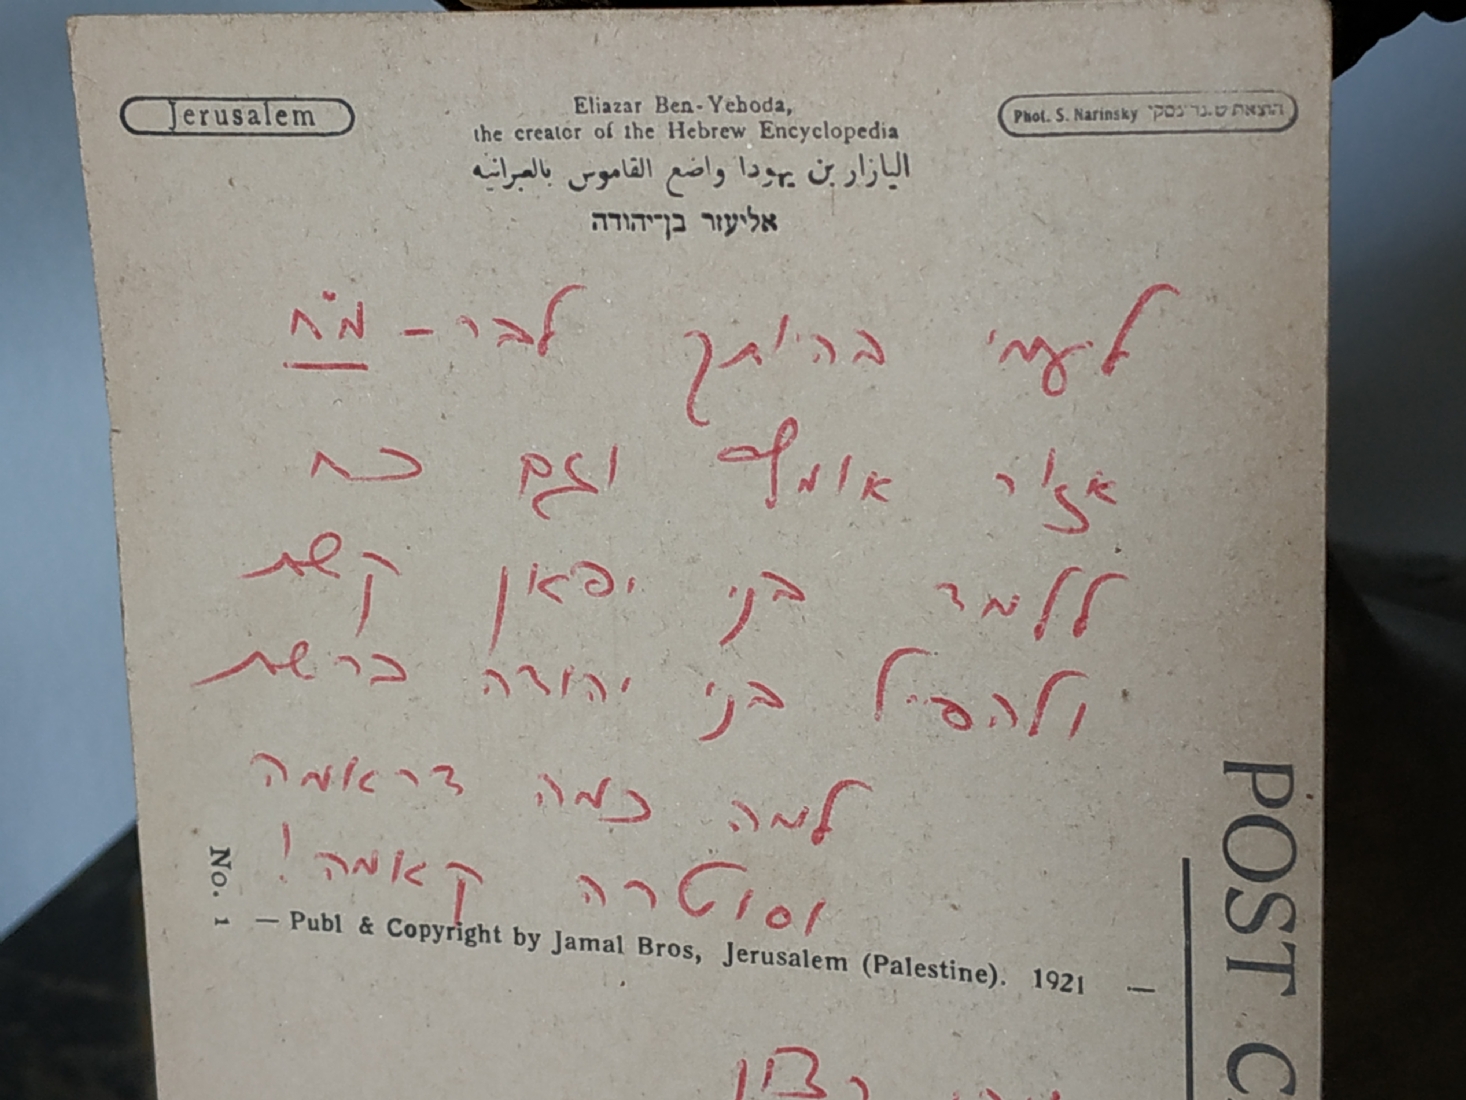 Jerusalem
Eliazar Ben-Yehoda,
the creator of the Hebrew Encyclopedia
اليازار بن يهودا واضع القاموس بالعبرانيه
אליעזר בן־יהודה
Phot. S. Narinsky הוצאת ש. נרינסקי
לעמי בהיותך לבר - מ"ח
אזור אומץ וגם כח
ללמד בני יפאן קשת
ולהפיל בני יהודה ברשת
למה כמה דראמה
וסוטרה קאמה!
No. 1
— Publ & Copyright by Jamal Bros, Jerusalem (Palestine). 1921 —
POST C
רצון